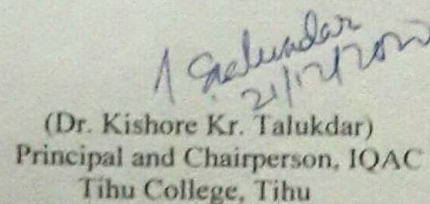 21/12/2020
(Dr. Kishore Kr. Talukdar)
Principal and Chairperson, IQAC
Tihu College, Tihu